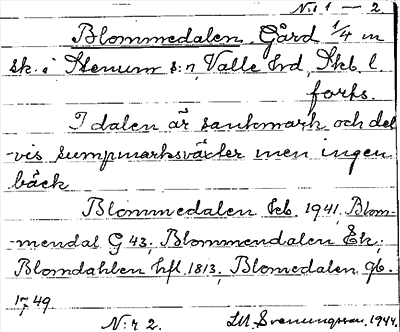 N:r 1 — 2.
Blommedalen. Gård 1/4 m
sk. i Stenum s:n, Valle hrd, Skb. l.
forts.
I dalen är sankmark och del-
vis sumpmarksväxter men ingen
bäck
Blommedalen Kb. 1941, Blom-
-mendal G 43; Blommendalen Ek;
Blomdahlen hfl. 1813, Blomedalen gb.
1749
N:r 2. Svenungsson. 1944.